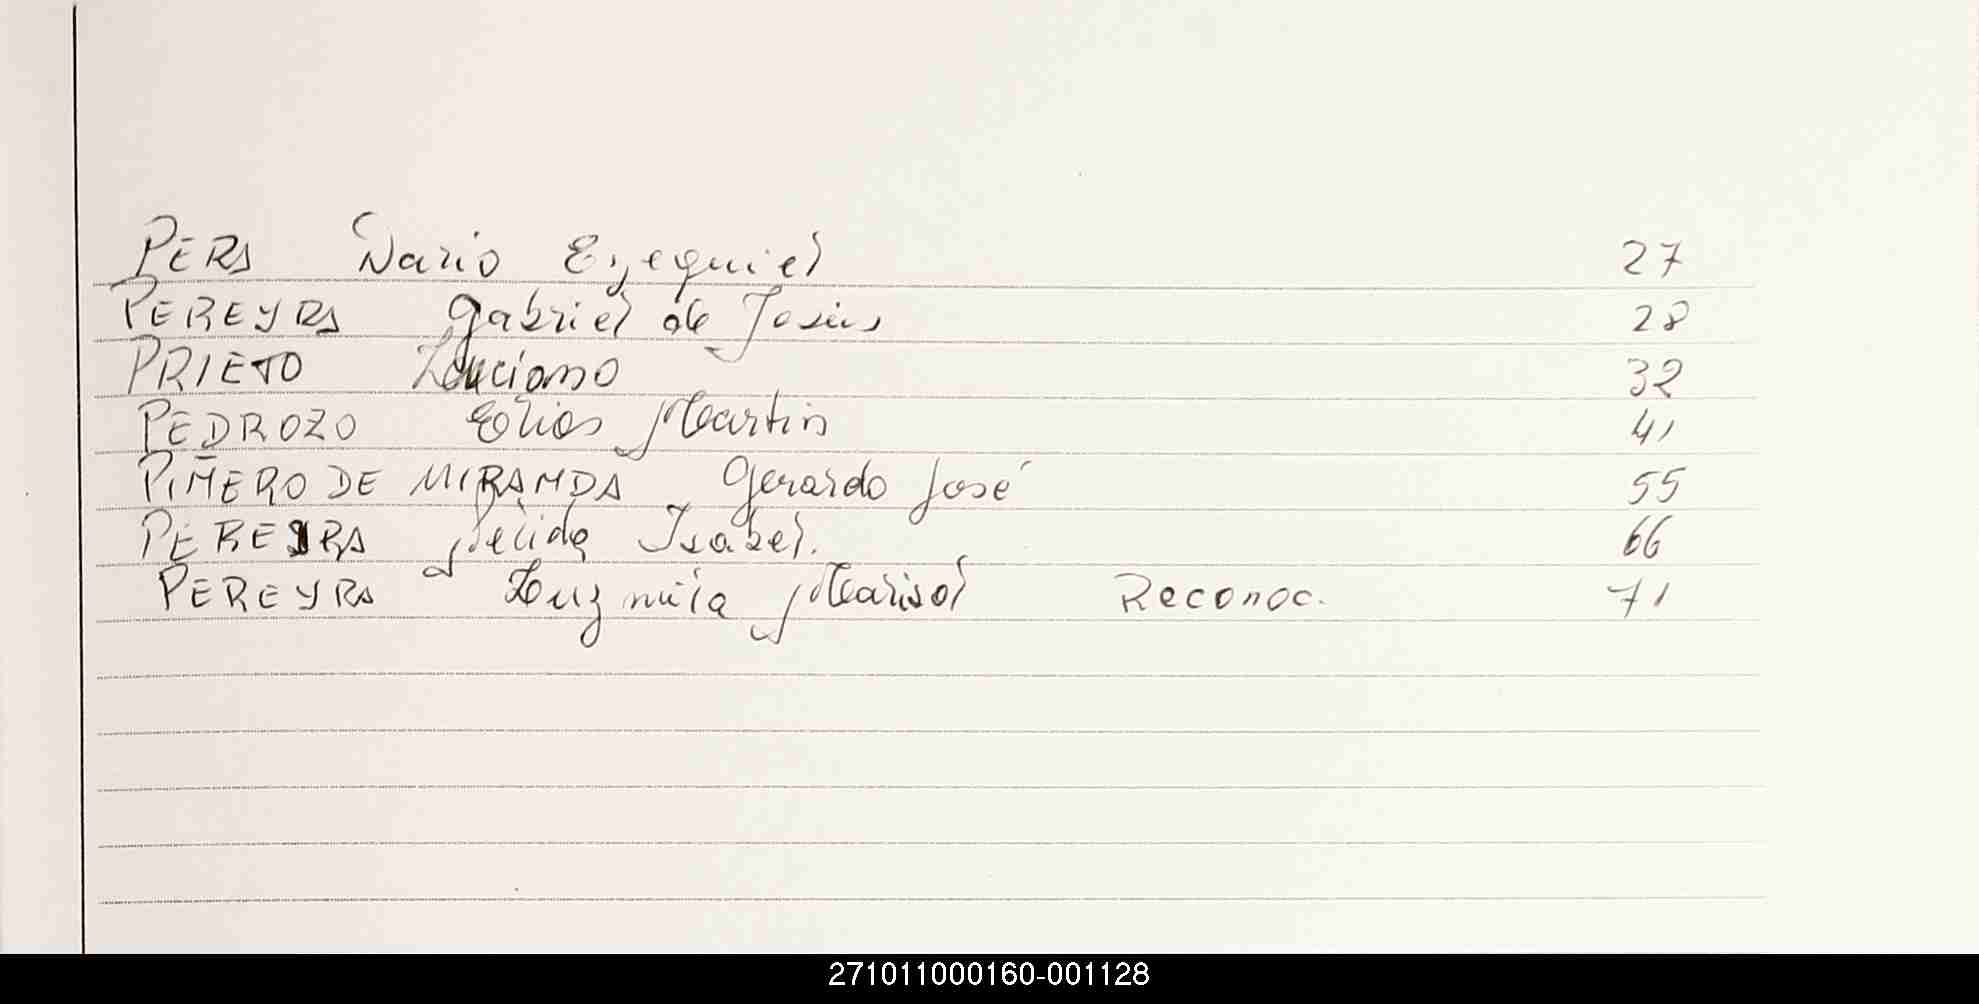 PERA Dario Ezequiel 27
PEREYRA Gabriel de Jesús 28
PRIETO Luciano 32
PEDROZO Elias Martin 41
PIÑERO DE MIRANDA Gerardo José 55
PEREYRA Nelida Isabel. 66
PEREYRA Luz Marisol Reconoc. 71
271011000160-001128